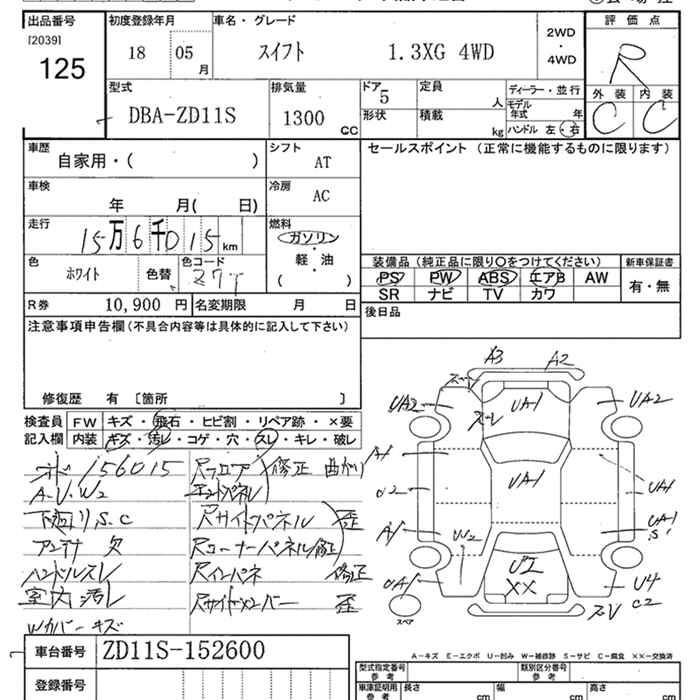 出品番号 初度登録年月 車名・グレード 2WD 評価点
[2039] 18 05 月 スイフト 1.3XG 4WD ・ R
125 4WD
外装 内装
C C
型式 排気量 ドア 5 定員 人 ディーラー・並行
DBA-ZD11S 1300 CC 形状 積載 kg モデル年式 年
ハンドル 左・右
車歴 シフト セールスポイント (正常に機能するものに限ります)
自家用・( ) AT
車検 冷房
年 月( 日) AC
走行 燃料
15万6千015 km ガソリン
軽・油
( )
色 色コード 装備品 (純正品に限り○をつけてください) 新車保証書
ホワイト 色替 Z7T PS PW ABS エアB AW 有・無
SR ナビ TV カワ
R券 10,900 円 名変期限 月 日 後日品
注意事項申告欄 (不具合内容等は具体的に記入して下さい)
修復歴 有 [箇所 ]
検査員 FW キズ・飛石・ヒビ割・リペア跡・×要
記入欄 内装 キズ・汚レ・コゲ・穴・スレ・キレ・破レ
156015 Rフロア 修正 曲がり
A・U・W2
下廻りS.C Rサイドパネル 歪
アンテナ欠 Rコーナーパネル修正
ハンドルスレ Rインパネ 修正
室内汚レ Rサイドメンバー 歪
Wカバーキズ
A3 A2
UA2 UA1 UA2
ズレ
A1 UA1
UA1 UA1
S1
W2 U2 U4
UA1 XX C2
スペア
A-キズ E-エクボ U-凹み W-補修跡 S-サビ C-腐食 XX-交換済
車台番号 ZD11S-152600 型式指定番号 類別区分番号
参考 参考
登録番号 車庫証明用 長さ 幅 高さ
参考 cm cm cm